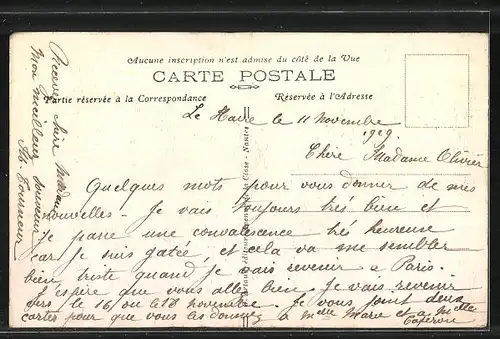 Aucune inscription n'est admise du côté de la Vue
CARTE POSTALE
Partie réservée à la Correspondance
Réservée à l'Adresse
Le Havre le 11 Novembre
1909.
Chère Madame Olivier
Quelques mots pour vous donner de mes
nouvelles - Je vais toujours très bien et
je passe une convalescence très heureuse
car je suis gatée, et cela va me sembler
bien triste quand je vais revenir à Paris.
J'espère que vous allez bien. Je vais revenir
vers le 16 ou le 18 novembre. Je vous joint deux
cartes pour que vous les donniez à Melle Marie et à Melle
Recevez chère Madame
mon meilleur souvenir